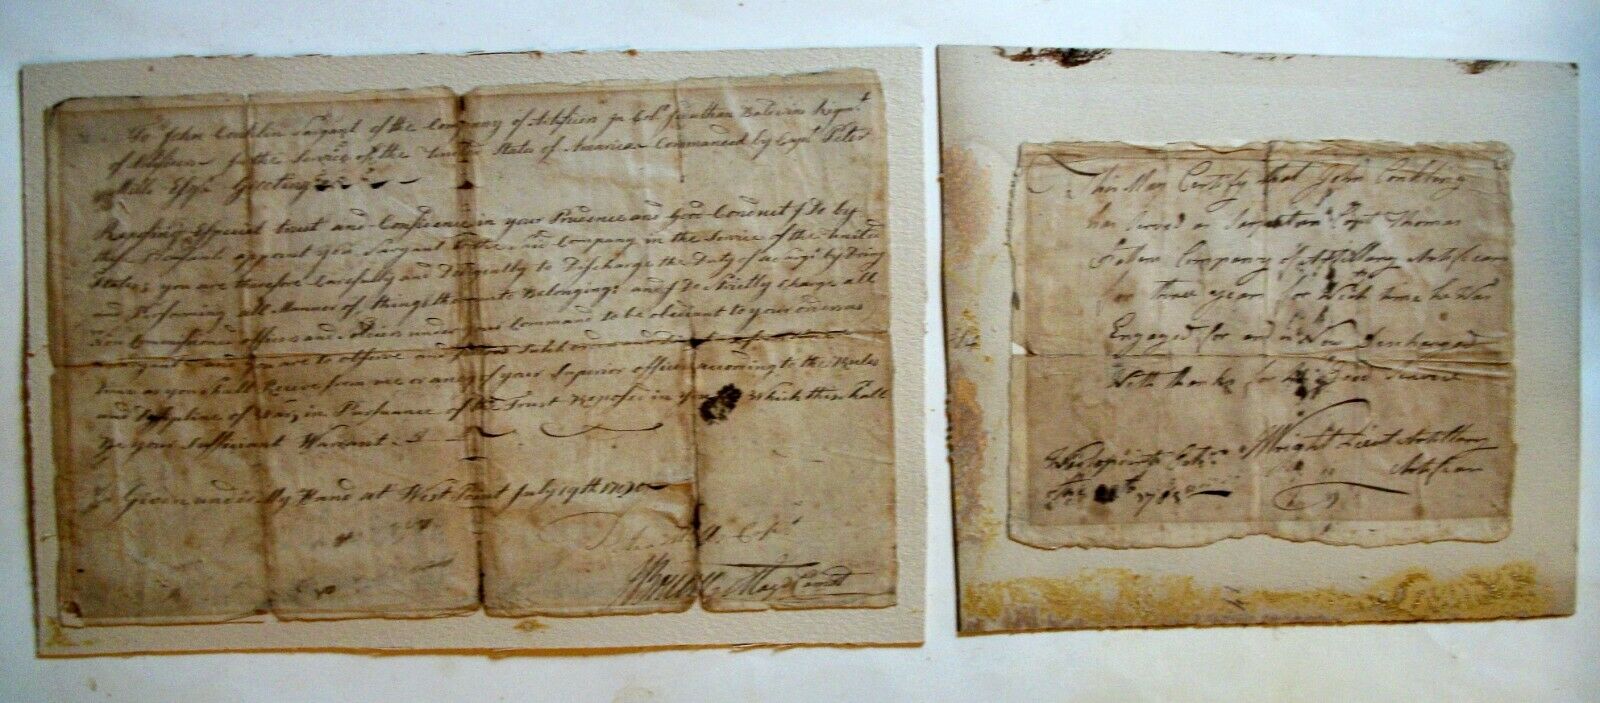 To John Conklin Sargant of the Company of Artificers in Col. Jeunthan Baldwins Regmt
of Artificers In the Service of the United States of America Commanded by Capt Peter
Mills Esqr Greeting
Reposing Especial trust and Confidence in your Prudence and Good Conduct I Do by
these Presents appoint you Sargant to the said Company in the Service of the United
States, you are therefore Carefully and Diligently to Discharge the Duty of by Doing
and Performing all Manner of things thereunto Belonging: and I Do Strictly Charge all
Non Commissioned officers and Soldiers under your Command to be obediant to your orders
as Sargant and you are to observe and follow Such orders and
time as you Shall Receve from me or any of your Superior officers according to the Rules
and Discipline of War, in Pursuance of the Trust Reposed in you Which this Shall
Be your Sufficiant Warrant
Given under My Hand at West Point July 19th
Majr Comdt
This May Certify that John Conkling
has Served as Serjeant in Capt Thomas
Company of Artillary Artificers
for three years for Wich time he Was
Engaged for and is Now Discharged
With thanks for his Good Service
Wright Lieut Artillary
Artificers